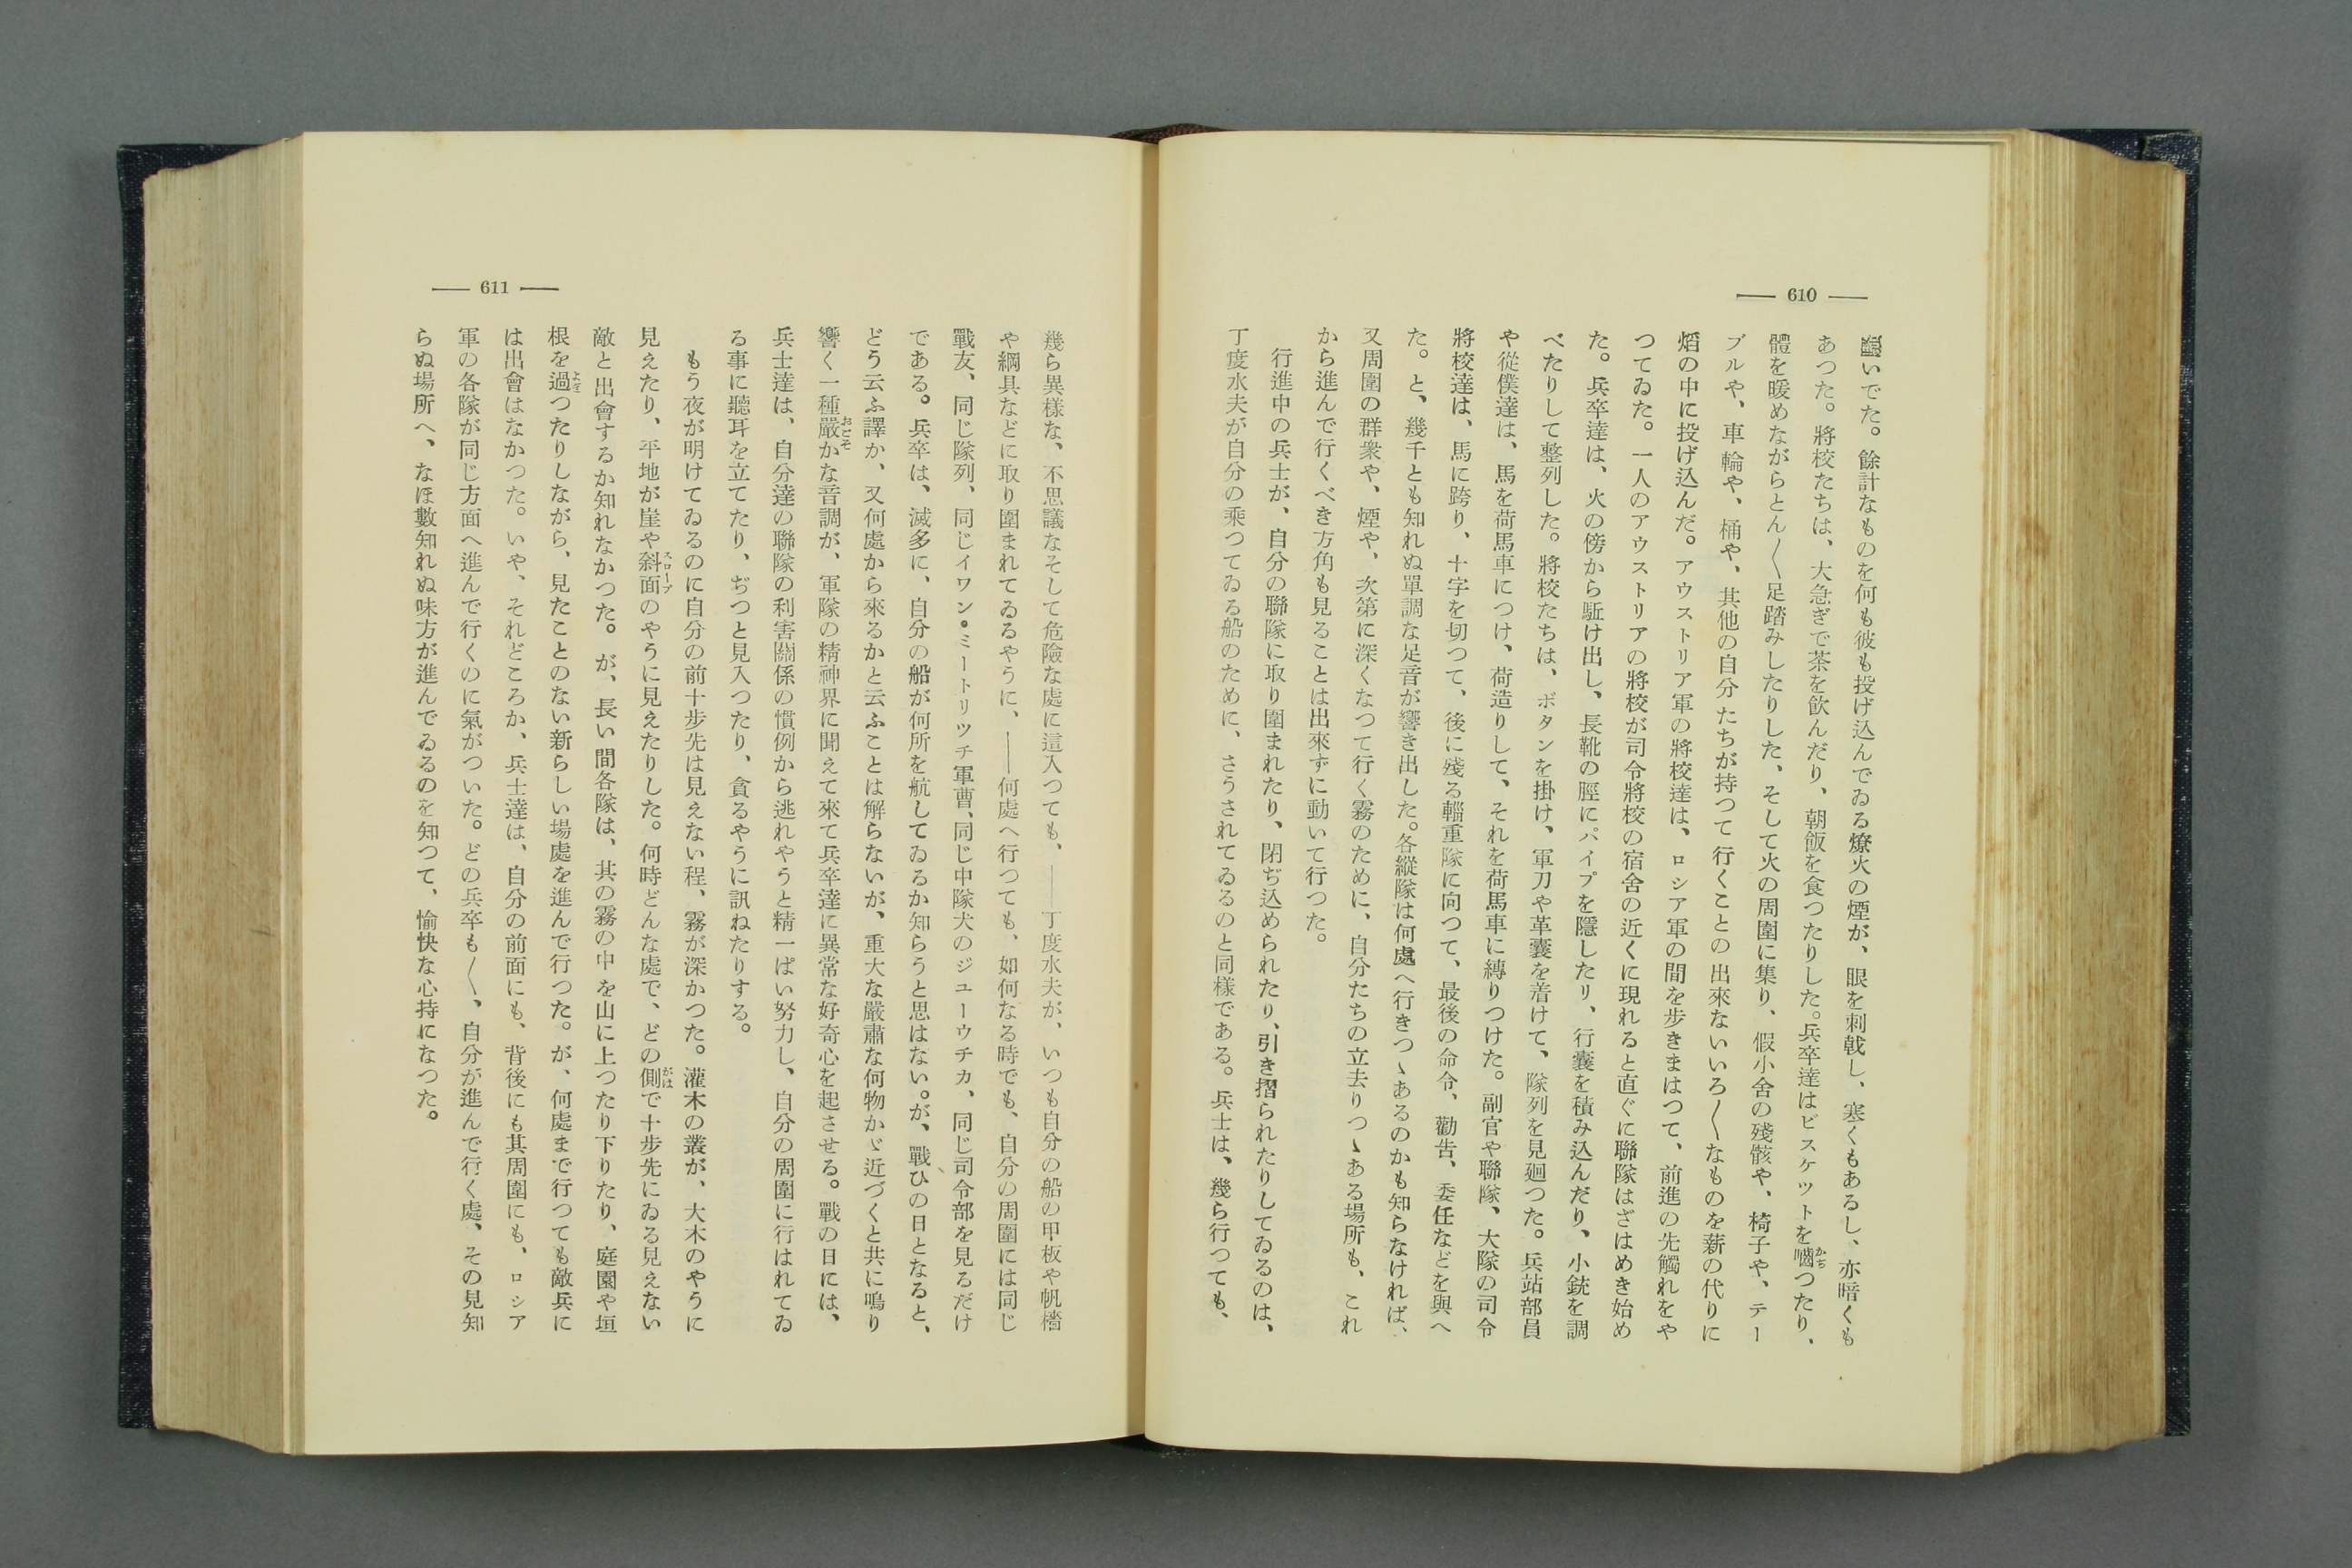 — 610 —
いでた。餘計なものを何も彼も投げ込んでゐる燎火の煙が、眼を刺戟し、寒くもあるし、亦暗くも
あつた。將校たちは、大急ぎで茶を飮んだり、朝飯を食つたりした。兵卒達はビスケツトを嚙つたり、
體を暖めながらとん〱足踏みしたりした、そして火の周圍に集り、假小舍の殘骸や、椅子や、テー
ブルや、車輪や、桶や、其他の自分たちが持つて行くことの出來ないいろ〱なものを薪の代りに
焰の中に投げ込んだ。アウストリア軍の將校達は、ロシア軍の間を歩きまはつて、前進の先觸れをや
つてゐた。一人のアウストリアの將校が司令將校の宿舍の近くに現れると直ぐに聯隊はざはめき始め
た。兵卒達は、火の傍から駈け出し、長靴の脛にパイプを隱したり、行囊を積み込んだり、小銃を調
べたりして整列した。將校たちは、ボタンを掛け、軍刀や革囊を着けて、隊列を見廻つた。兵站部員
や從僕達は、馬を荷馬車につけ、荷造りして、それを荷馬車に縛りつけた。副官や聯隊、大隊の司令
將校達は、馬に跨り、十字を切つて、後に殘る輜重隊に向つて、最後の命令、勸告、委任などを與へ
た。と、幾千とも知れぬ單調な足音が響き出した。各縱隊は何處へ行きつゝあるのかも知らなければ、
又周圍の群衆や、煙や、次第に深くなつて行く霧のために、自分たちの立去りつゝある場所も、これ
から進んで行くべき方角も見ることは出來ずに動いて行つた。
行進中の兵士が、自分の聯隊に取り圍まれたり、閉ぢ込められたり、引き摺られたりしてゐるのは、
丁度水夫が自分の乘つてゐる船のために、さうされてゐるのと同樣である。兵士は、幾ら行つても、
— 611 —
幾ら異樣な、不思議なそして危險な處に這入つても、――丁度水夫が、いつも自分の船の甲板や帆檣
や綱具などに取り圍まれてゐるやうに、――何處へ行つても、如何なる時でも、自分の周圍には同じ
戰友、同じ隊列、同じイワン・ミートリツチ軍曹、同じ中隊犬のジユーウチカ、同じ司令部を見るだけ
である。兵卒は、滅多に、自分の船が何所を航してゐるか知らうと思はない。が、戰ひの日となると、
どう云ふ譯か、又何處から來るかと云ふことは解らないが、重大な嚴肅な何物かゞ近づくと共に鳴り
響く一種嚴おごそかな音調が、軍隊の精神界に聞えて來て兵卒達に異常な好奇心を起させる。戰の日には、
兵士達は、自分達の聯隊の利害關係の慣例から逃れやうと精一ぱい努力し、自分の周圍に行はれてゐ
る事に聽耳を立てたり、ぢつと見入つたり、貪るやうに訊ねたりする。
もう夜が明けてゐるのに自分の前十步先は見えない程、霧が深かつた。灌木の叢が、大木のやうに
見えたり、平地が崖や斜面スロープのやうに見えたりした。何時どんな處で、どの側がはで十步先にゐる見えない
敵と出會するか知れなかつた。が、長い間各隊は、其の霧の中を山に上つたり下りたり、庭園や垣
根を過よぎつたりしながら、見たことのない新らしい場處を進んで行つた。が、何處まで行つても敵兵に
は出會はなかつた。いや、それどころか、兵士達は、自分の前面にも、背後にも其周圍にも、ロシア
軍の各隊が同じ方面へ進んで行くのに氣がついた。どの兵卒も〱、自分が進んで行く處、その見知
らぬ場所へ、なほ數知れぬ味方が進んでゐるのを知つて、愉快な心持になつた。